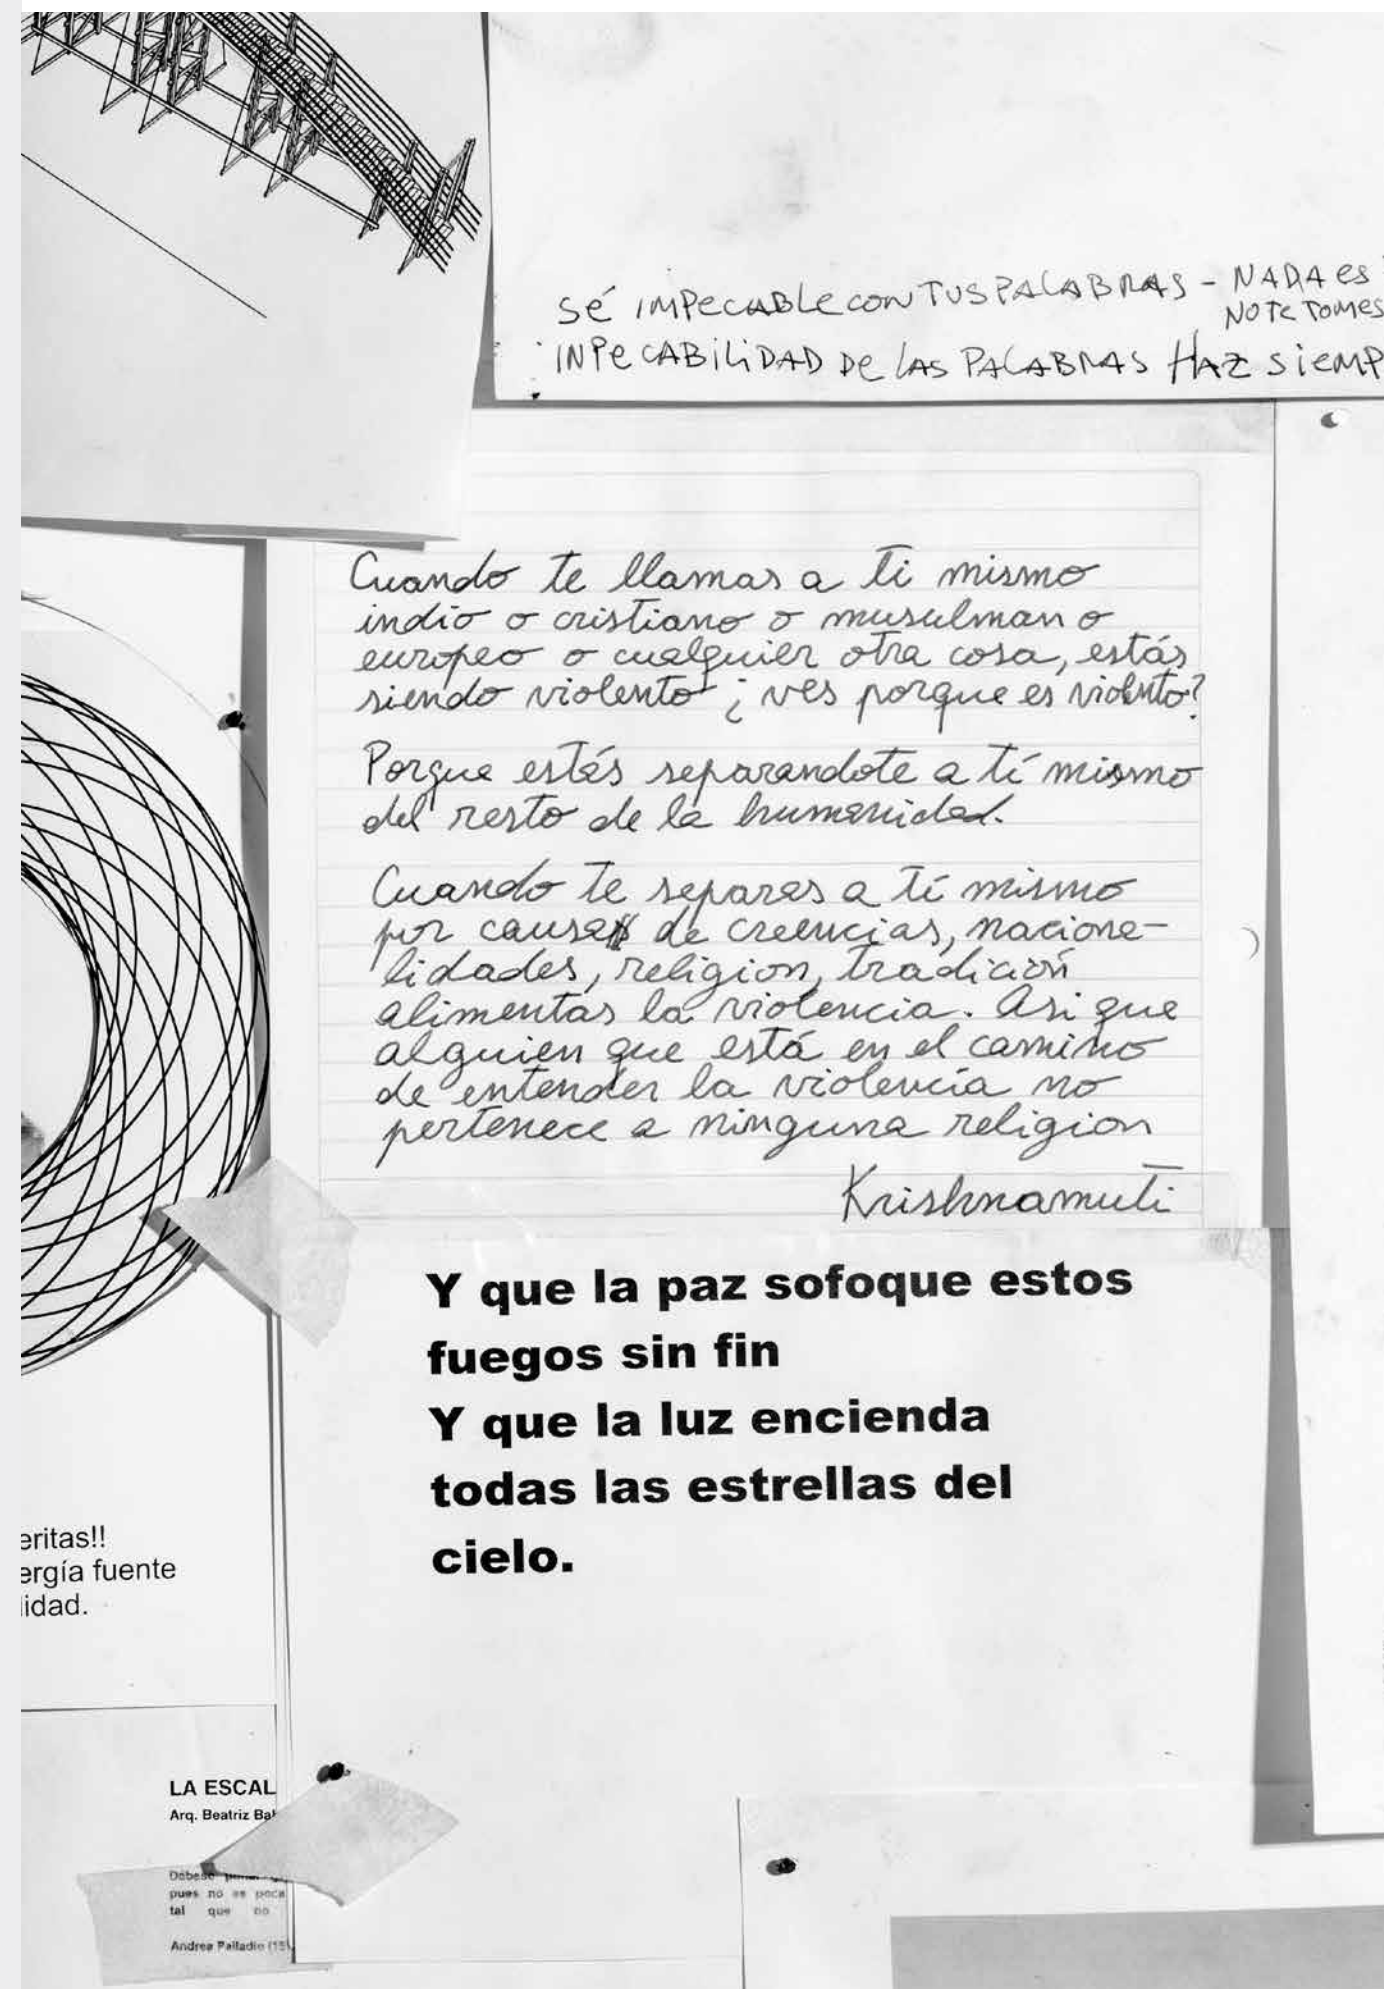 SÉ IMPECABLE CON TUS PALABRAS - NADA es
NO TE TOMES
INPECABILIDAD DE LAS PALABRAS HAZ SIEMP
Cuando te llamas a ti mismo
indio o cristiano o musulman o
europeo o cualquier otra cosa, estás
siendo violento ¿ ves porque es violento?
Porque estás separandote a tí mismo
del resto de la humanidad.
Cuando te separas a tí mismo
por causa de creencias, naciona-
lidades, religion, tradición
alimentas la violencia. Asi que
alguien que está en el camino
de entender la violencia no
pertenece a ninguna religion
Krishnamuti
Y que la paz sofoque estos
fuegos sin fin
Y que la luz encienda
todas las estrellas del
cielo.
eritas!!
ergía fuente
lidad.
LA ESCAL
Arq. Beatriz Bal
Débese
pues no es poca
tal que no
Andrea Palladio (15